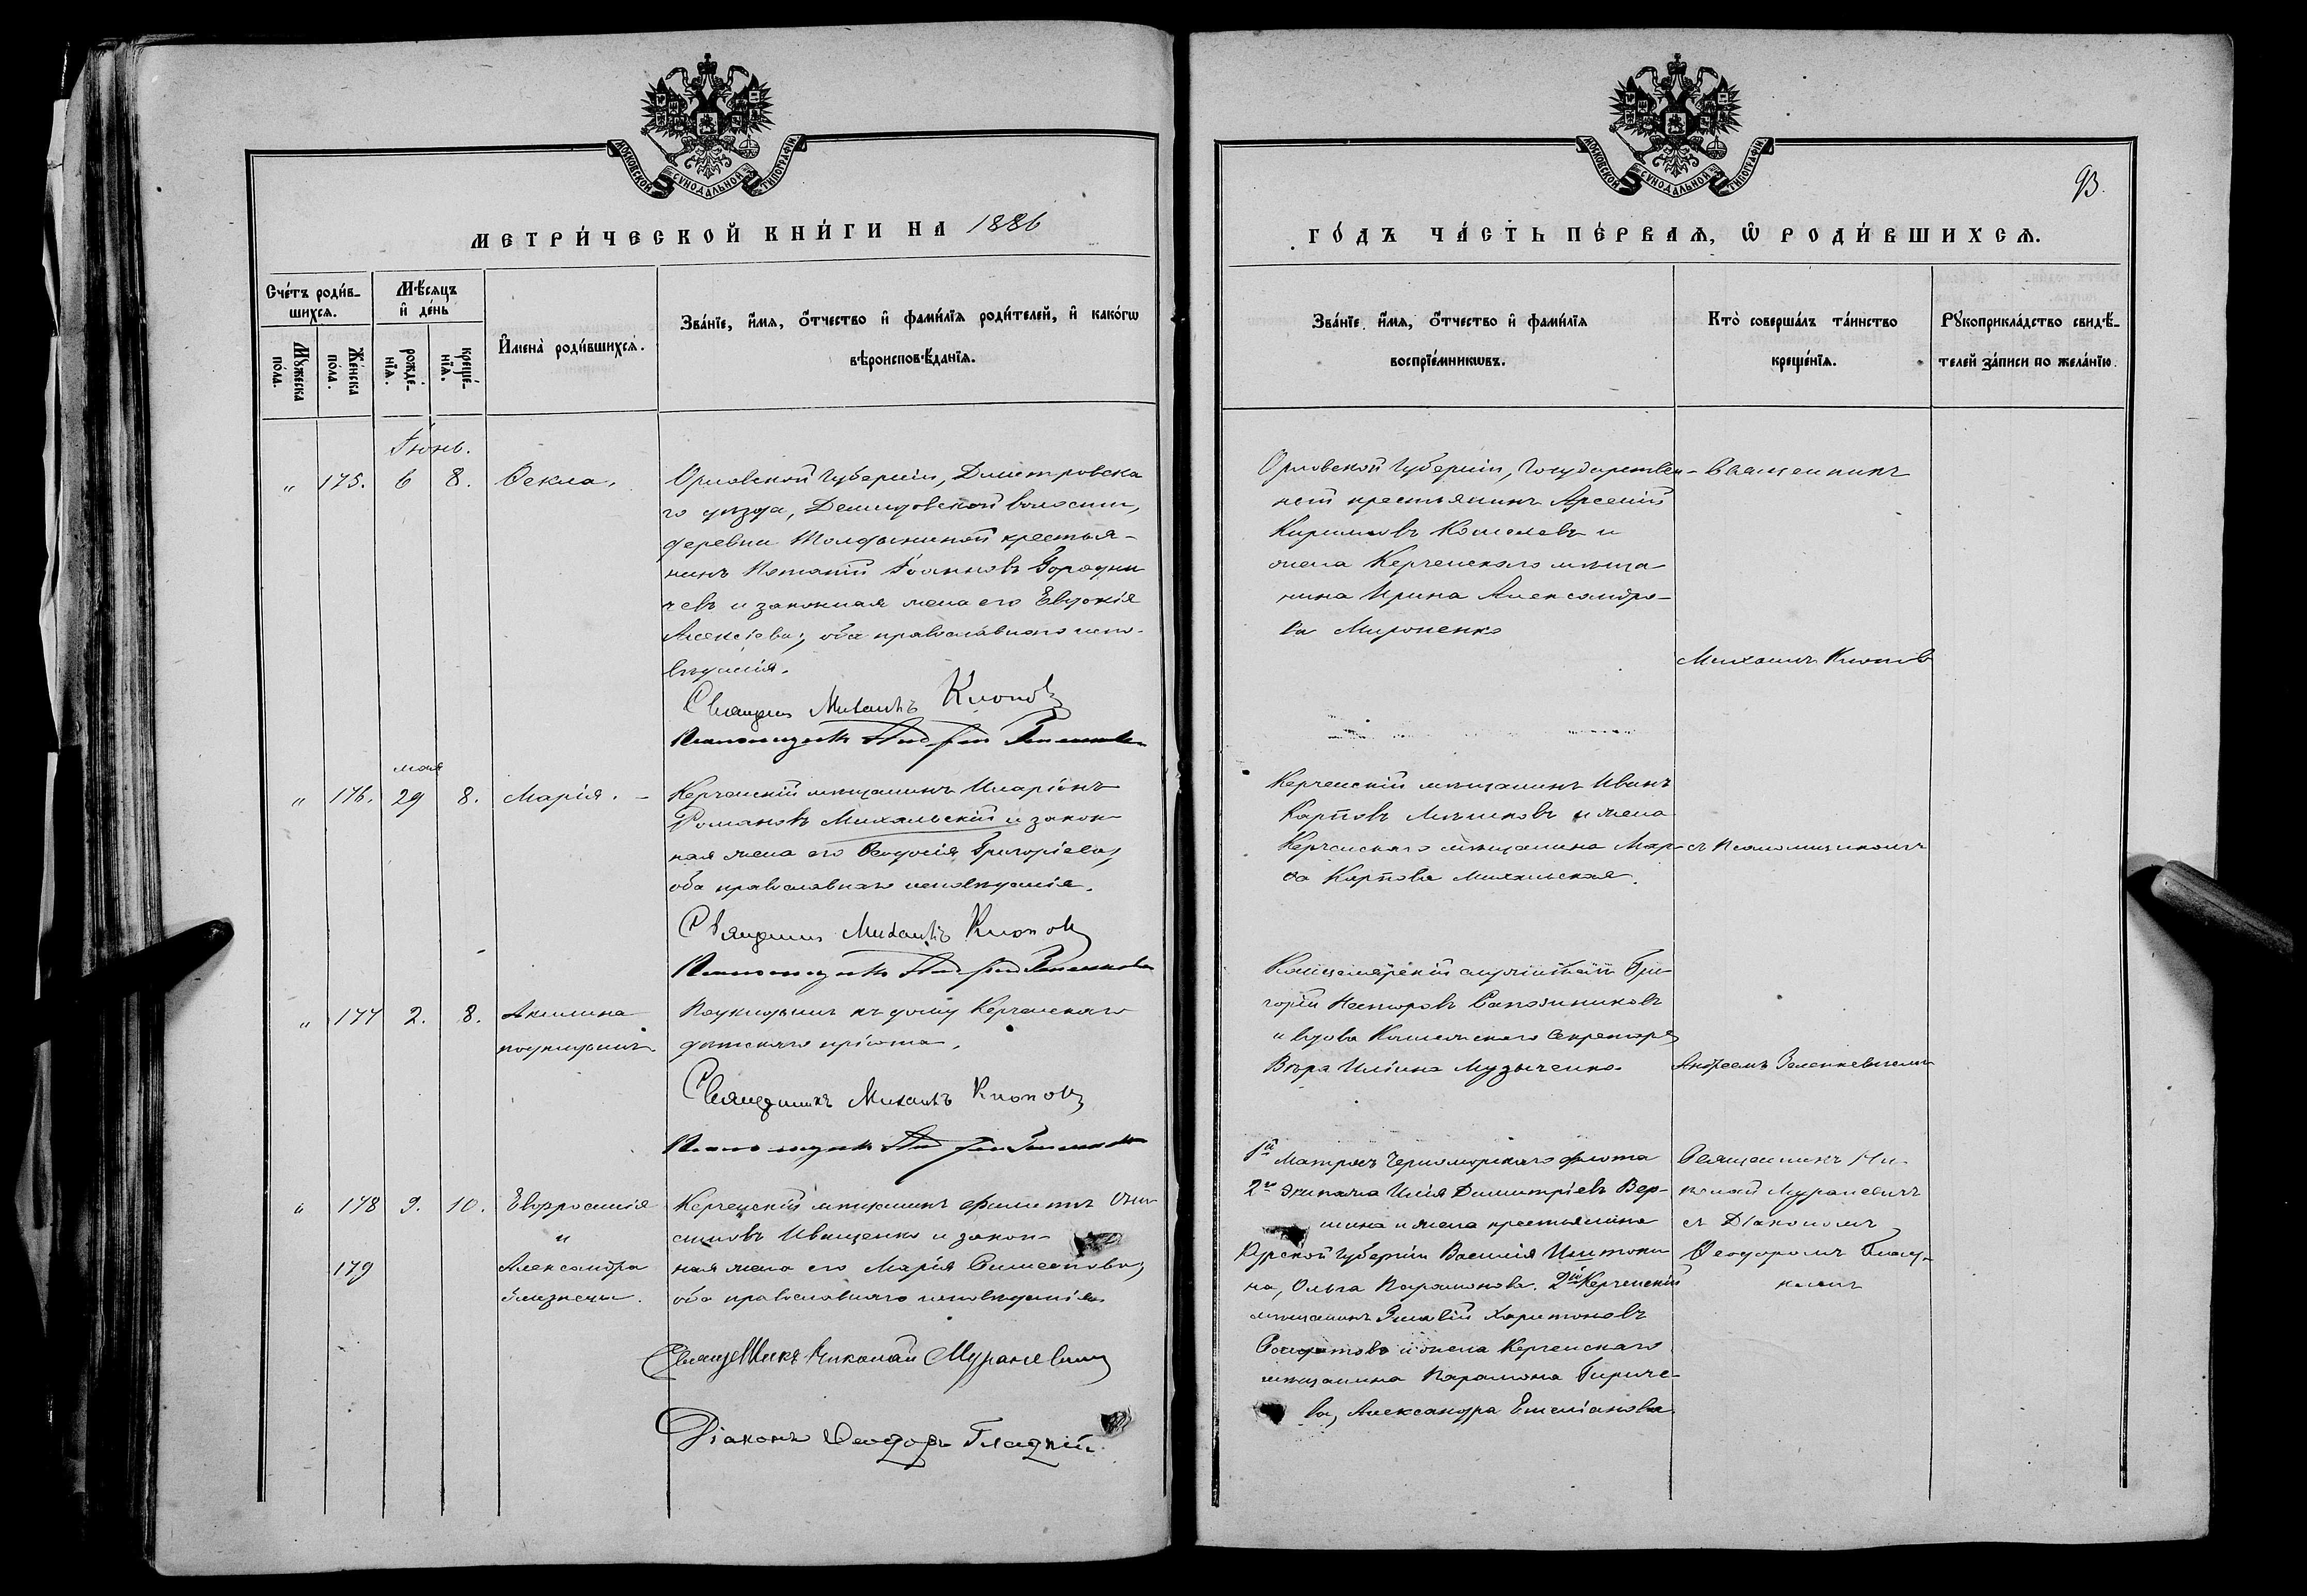 МОСКОВСКОЙ СѴНОДАЛЬНОЙ ТИПОГРАФІИ
МЕТРИ́ЧЕСКОЙ КНИ́ГИ НА 1886
Сче́тъ роди́в-
шихсѧ.
Мѣ́сѧцъ
и҆ де́нь
Мꙋ́жеска
по́ла.
Же́нска
по́ла.
рожде́-
нїѧ.
креще́-
нїѧ.
И҆мена̀ роди́вшихсѧ.
Зва́нїе, и҆́мѧ, ѻ҆́тчество и҆ фами́лїѧ роди́телей, и҆ како́гѡ
вѣроисповѣ́данїѧ.
Іюнь.
" 175. 6 8. Ѳекла.
Орловской Губерніи, Дмитровска
го уѣзда, Демидовской волости,
деревни крестья-
нинъ Потапій Іоанновъ Городни
чевъ и законная жена его Евдокія
Алексѣева; оба православнаго испо-
вѣданія.
Священникъ Михаилъ Клоповъ
Псаломщикъ Андрей
мая
" 176. 29 8. Марія. -
Керченскій мѣщанинъ Иларіонъ
Романовъ Михальскій и закон-
ная жена его Ѳеодосія Григоріева;
оба православнаго исповѣданія.
Священникъ Михаилъ Клоповъ
Псаломщикъ Андрей
" 177 2. 8. Акилина
подкидышъ.
Подкидышъ къ дому Керченскаго
дѣтскаго пріюта.
Священникъ Михаилъ Клоповъ
Псаломщикъ Андрей
" 178 9. 10. Евфросинія
и
179 Александра
близнецы.
Керченскій мѣщанинъ Филиппъ Они-
симовъ Иващенко и закон-
ная жена его Марія Симеонова;
оба православнаго исповѣданія
Священникъ Николай Мураневичъ
Діаконъ Ѳеодоръ Гладкій.
93.
МОСКОВСКОЙ СѴНОДАЛЬНОЙ ТИПОГРАФІИ
ГО́ДЪ ЧА́СТЬ ПЕ́РВАѦ, Ѽ РОДИ́ВШИХСѦ.
Зва́нїе и҆́мѧ, ѻ҆́тчество и҆ фами́лїѧ
воспрїе́мникѡвъ.
Кто̀ соверша́лъ та́инство
креще́нїѧ.
Рꙋкоприкла́дство свидѣ́-
телей за́писи по жела́нїю.
Орловской Губерніи, Государствен-
ный крестьянинъ Арсеній
Кириловъ Кошелевъ и
жена Керченскаго мѣща
нина Ирина Александро-
ва Мироненко
Священникъ
Михаилъ Клоповъ
Керченскій мѣщанинъ Иванъ
Карповъ и жена
Керченскаго мѣщанина Мар-
ѳа Карпова Михальская.
съ Псаломщикомъ
Канцелярскій служитель Гри-
горій Несторовъ Сапожниковъ
и вдова Коллежскаго Секретаря
Вѣра Ильина Музыченко
Андреемъ Зеленкевичемъ
1й Матросъ Черноморскаго флота
2го экипажа Илія Димитріевъ Вер-
шина и жена крестьянина
Курской Губерніи Василія
на, Ольга Парамонова. 2й Керченскій
мѣщанинъ Зиновій Харитоновъ
и жена Керченскаго
мѣщанина Парамона Гириче-
ва, Александра Емеліанова.
Священникъ Ни-
колай Мураневичъ
съ Діакономъ
Ѳеодоромъ Глад-
кимъ